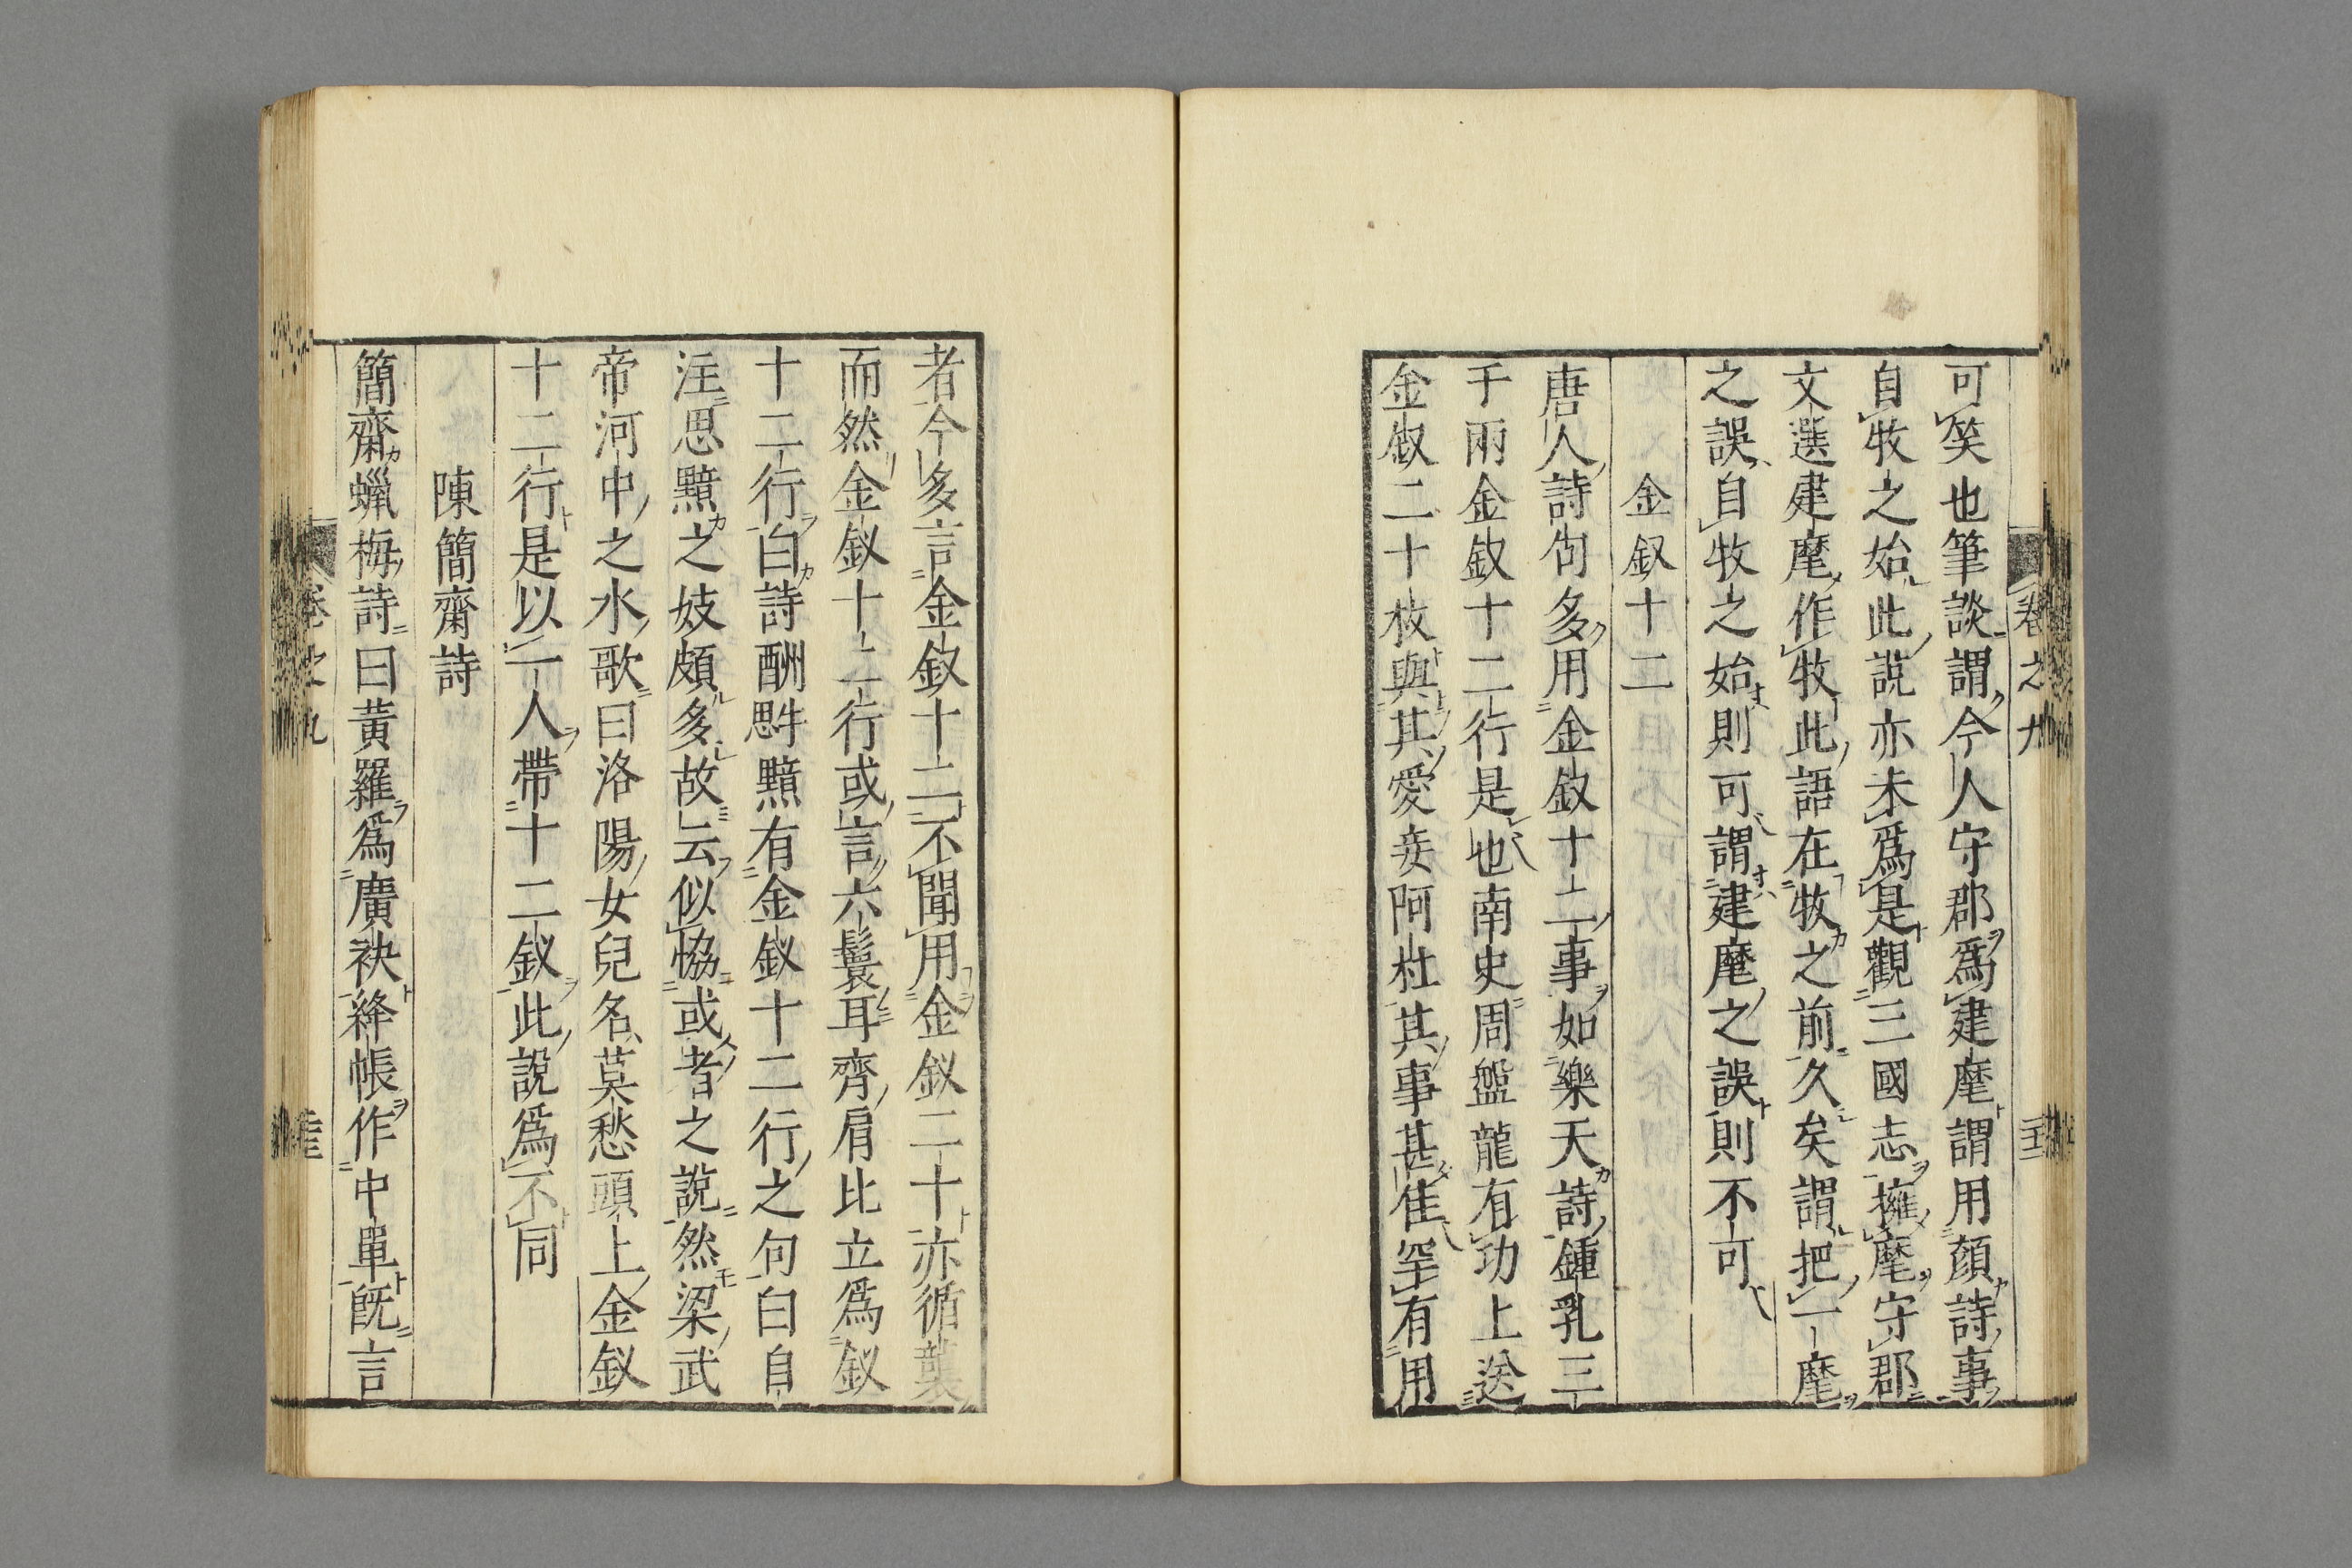 可笑也筆談謂今人守郡爲建麾謂用顔詩事
自牧之始此説亦未爲是觀三國志擁麾守郡
文選建麾作牧此語在牧之前久矣謂把一麾
之誤自牧之始則可謂建麾之誤則不可
金釵十二
唐人詩句多用金釵十二事如樂天詩鍾乳三
千兩金釵十二行是也南史周盤龍有功上送
金釵二十枚與其愛妾阿杜其事甚佳罕有用
者今多言金釵十二不聞用金釵二十亦循襲
而然金釵十二行或言六鬟耳齊肩比立爲釵
十二行白詩酬牛思黯有金釵十二行之句白自
注思黯之妓頗多故云似恊或者之說然梁武
帝河中之水歌曰洛陽女兒名莫愁頭上金釵
十二行是以一人帶十二釵此說爲不同
陳簡齋詩
簡齋蠟梅詩曰黃羅爲廣袂絳帳作中單旣言
卷之九